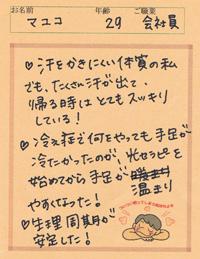 お名前 年齢 ご職業
マユコ 29 会社員
♡汗をかきにくい体質の私
でも、たくさん汗が出て、
帰る時はとてもスッキリ
している!
♡冷え症で何をやっても手足が
冷たかったのが、光セラピを
始めてから手足が
温まり
やすくなった!
♡生理周期が
安定した!